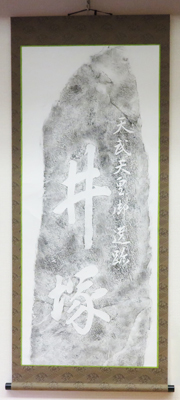 天武天皇御遺跡
井塚